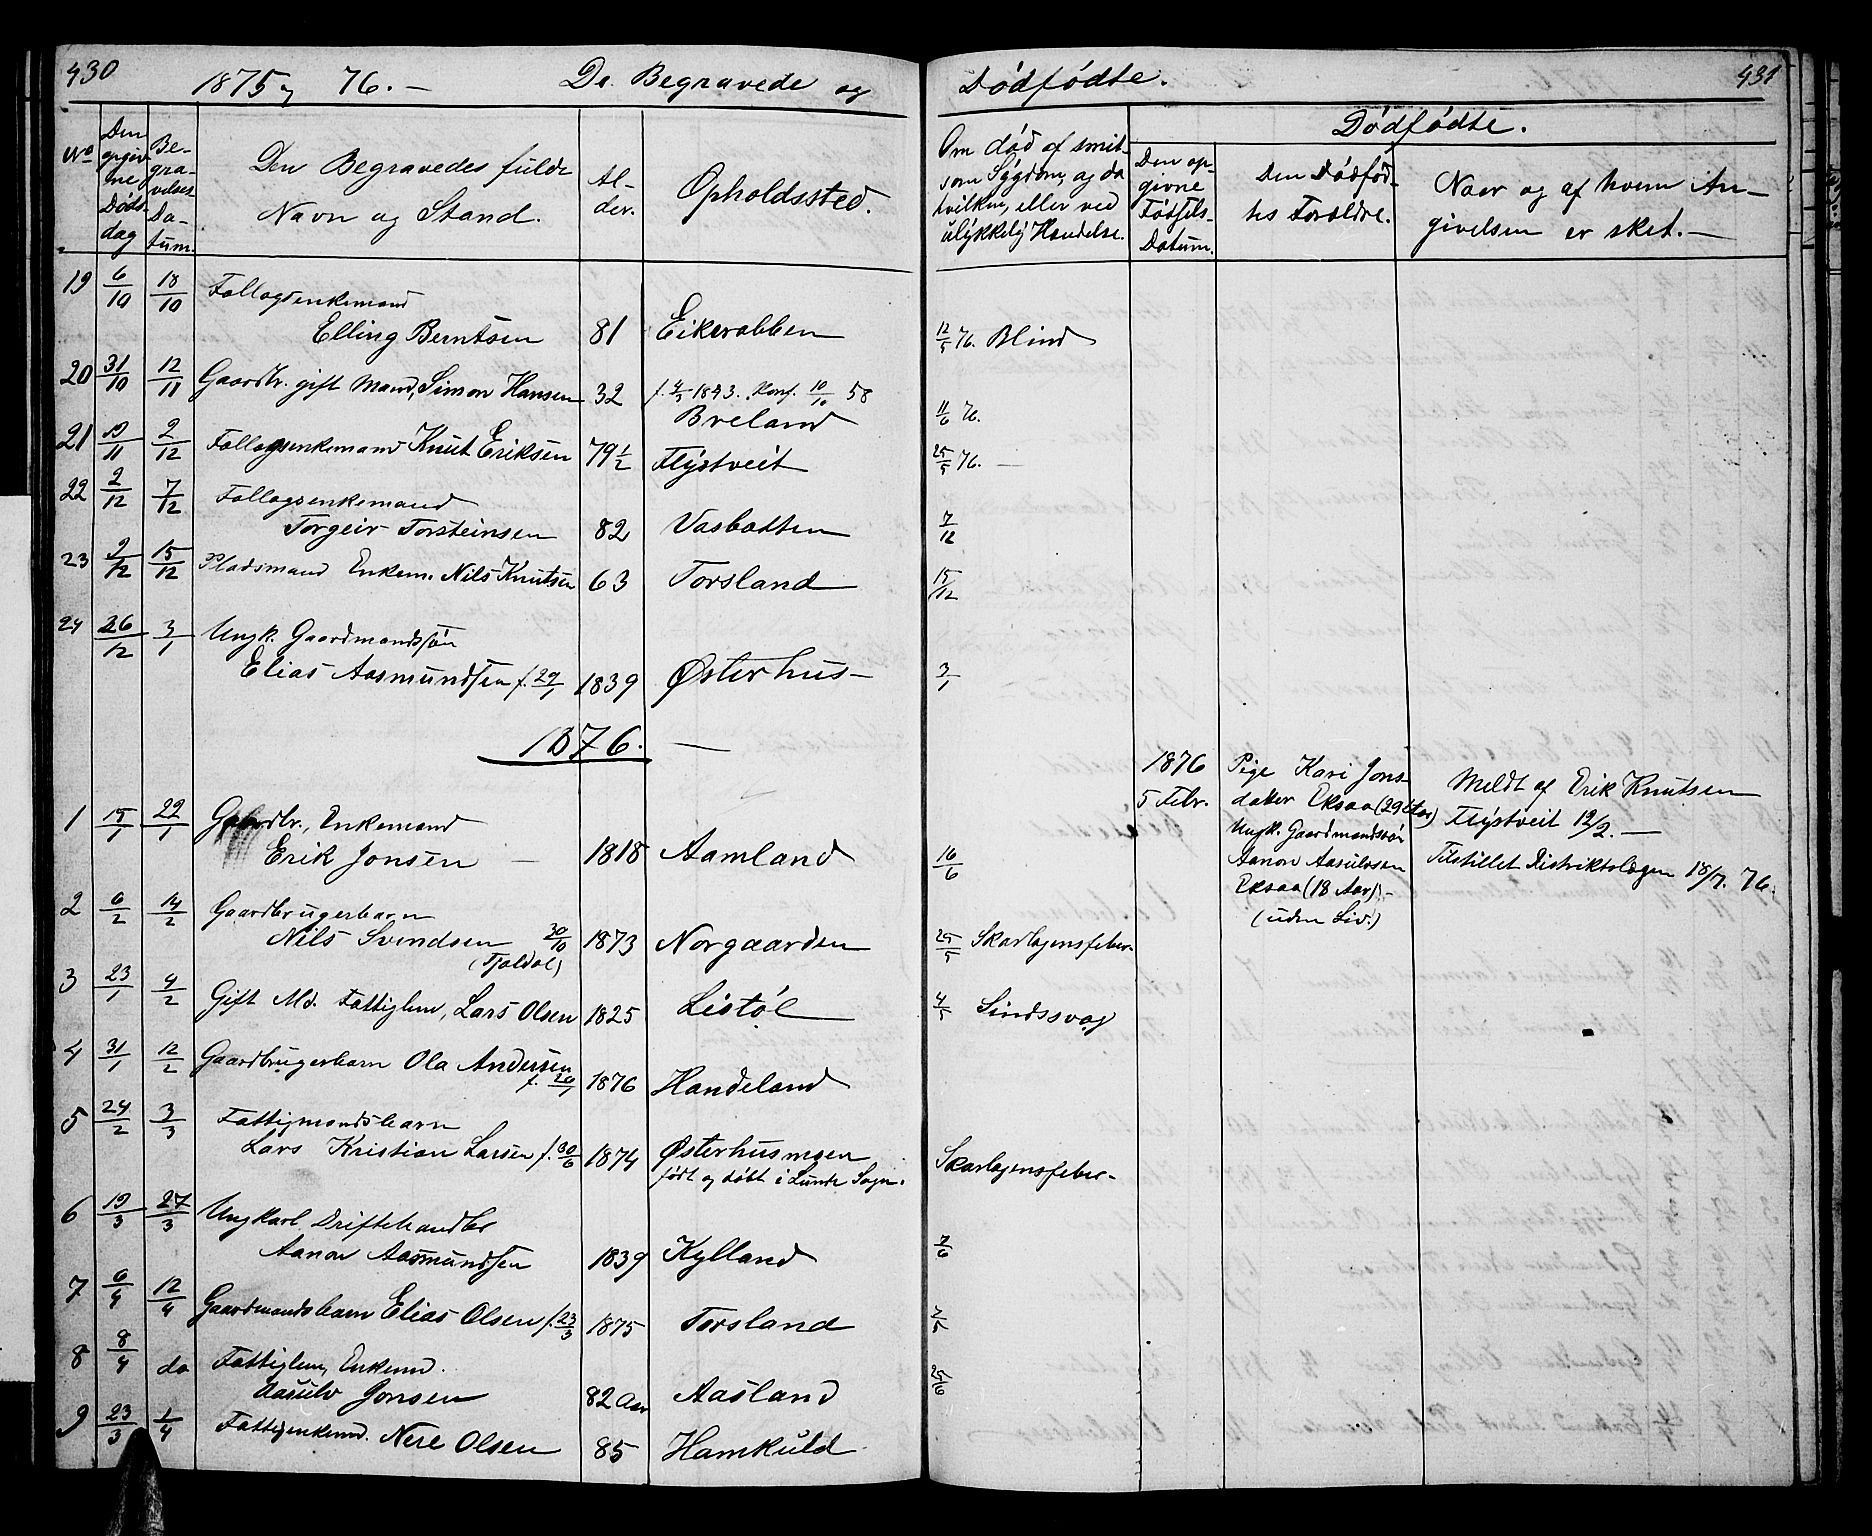 430
1875 76. — De Begravede og Dødfødte. 431
No
Den opgivne Dødsdag
Begravelses Datum.
Den Begravedes fulde Navn og Stand.
Alder.
Opholdssted.
Om død af smitsom Sygdom, og da hvilken, eller ved ulykkelig Hændelse.
Dødfødte.
Den opgivne Fødsels-Datum.
Den Dødfødtes Forældre.
Naar og af hvem Angivelsen er sket. —
19 6/10 18/10 Follogsenkemand
Elling Berntsen 81 Eikerabben 12/5 76. Blind
20 31/10 12/11 Gaardbr. gift Mand, Simon Hansen 32 f. 4/5 1843. Konf. 10/10 58
Breland 11/6 76.
21 19/11 2/12 Follogsenkemand Knut Eriksen 79 1/2 Fløstveit 25/5 76. —
22 2/12 7/12 Follogsenkemand
Torgeir Torsteinsen 82 Vasbotten 7/12
23 9/12 15/12 Pladsmand Enkem. Nils Knutsen 63 Torsland 15/12
24 26/12 3/1 Ungk. Gaardmandssøn
Elias Aasmundsen f. 29/1 1839 Østerhus — 3/1
1876. —
1 15/1 22/1 Gaardbr., Enkemand
Erik Jonsen — 1818 Aamland 16/6
2 6/2 14/2 Gaardbrugerbarn
Nils Svendsen 30/10 1873 Norgaarden 25/5 Skarlagensfeber.
(Tjaldal)
3 23/1 4/2 Gift Md. Fattiglem, Lars Olsen 1825 Listøl 4/5 Sindssvag
4 31/1 12/2 Gaardbrugerbarn Ola Andersen
f. 26/1 1876 Handeland
5 24/2 3/3 Fattigmandsbarn
Lars Kristian Larsen f. 30/6 1874 Østerhusmoen Skarlagensfeber.
født og døbt i Lunde Sogn.
6 19/3 27/3 Ungkarl Driftehandler
Aanon Aasmundsen 1839 Kylland 7/6
7 6/4 12/4 Gaardmandsbarn Elias Olsen f. 23/3 1875 Torsland 7/5
8 8/4 do Fattiglem, Enkemd.
Aasulv Jonsen 82 Aar Aasland 25/6
9 23/3 1/4 Fattigenkemd. Nere Olsen 85 Hamkuld
1876
5 Febr.
Pige Kari Jons-
datter Eksaa (29 Aar)
Ungk. Gaardmandssøn
Aanon Aasulvsen
Eksaa (18 Aar) —
(uden Liv.)
Meldt af Erik Knutsen
Fløstveit 12/2. —
Tilstillet Distriktslægen 18/7. 76.